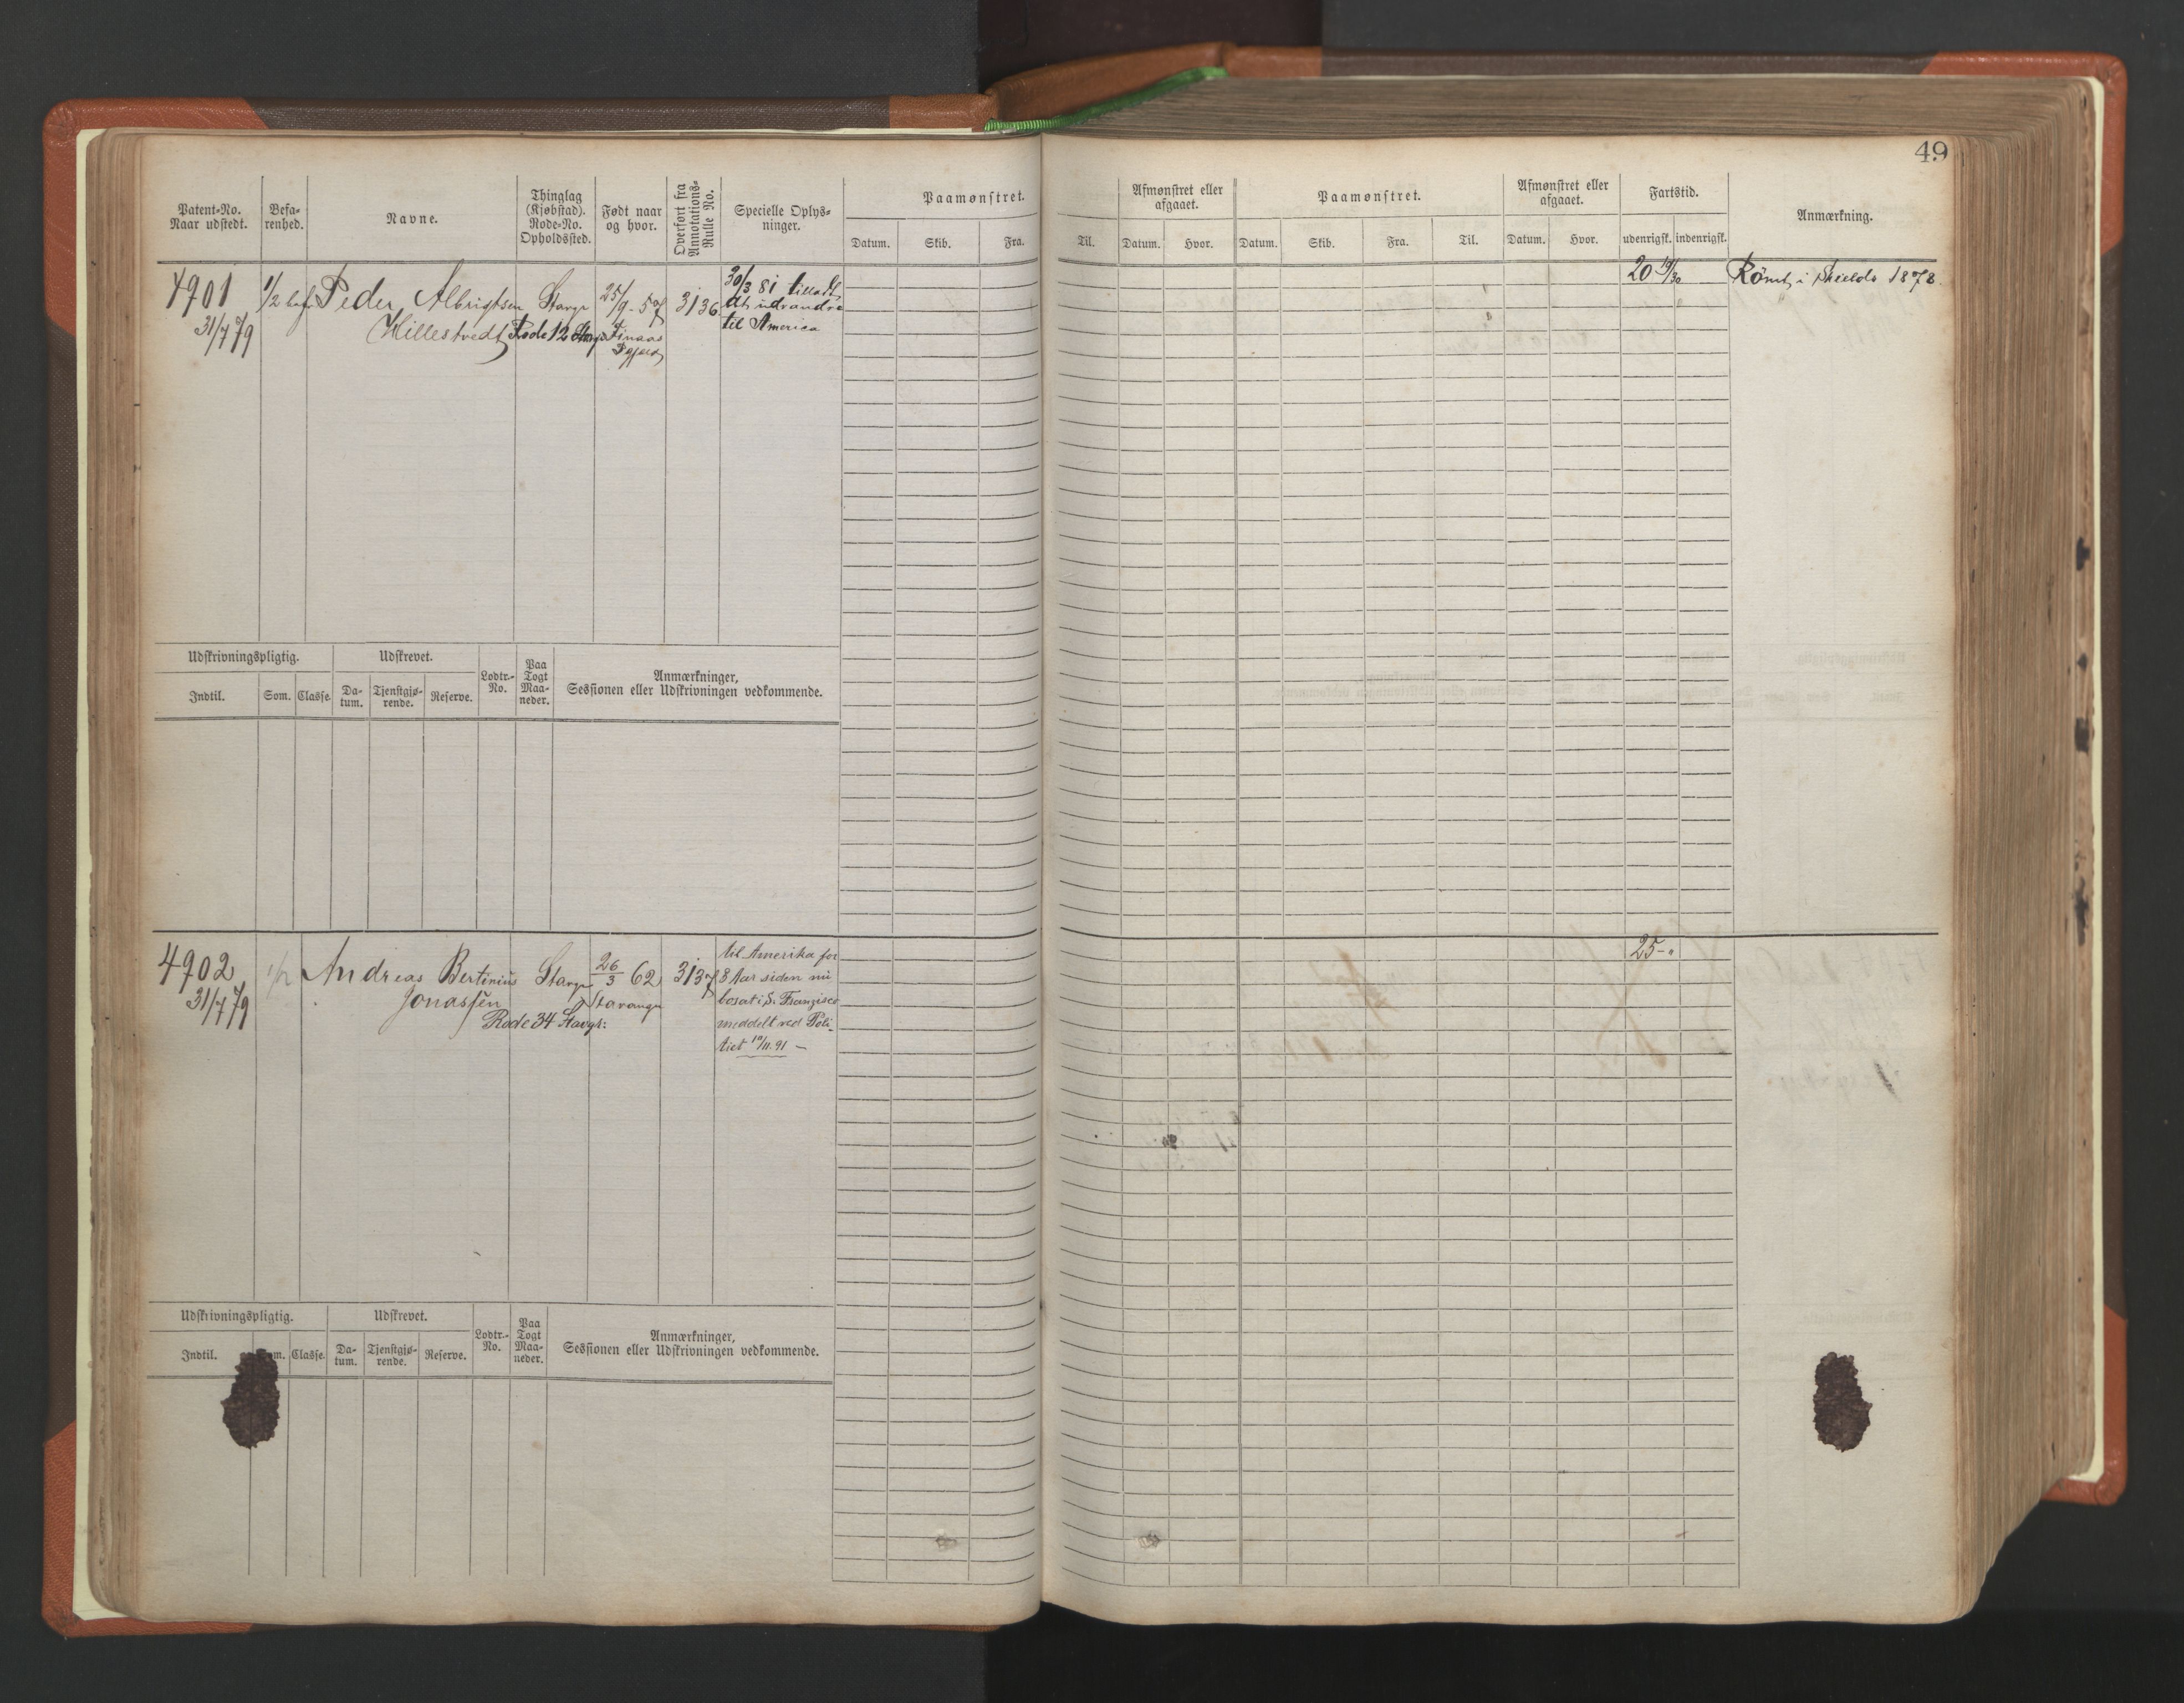 49
Patent-No. Naar udstedt.
Befa- renhed.
Navne.
Thinglag (Kjøbstad). Rode-No. Opholdssted.
Født naar og hvor.
Overført fra Annotations- Rulle No.
Specielle Oplys- ninger.
Paamønstret.
Datum. Skib. Fra.
Til.
Afmønstret eller afgaaet.
Datum. Hvor.
Paamønstret.
Datum. Skib. Fra. Til.
Afmønstret eller afgaaet.
Datum. Hvor.
Fartstid.
udenrigsk. indenrigsk.
Anmærkning.
4901 1/2 bef Peder Albrigtsen Stavgr 25/9-57 3136 30/3 81 tilladt
at udvandre
31/7 79 Hillestvedt Rode 12 Finaas til America
20 19/30 Rømt i Shields 1878.
Udskrivningspligtig. Udskrevet. Lodtr.- No. Paa Togt Maa- neder. Anmærkninger,
Sessionen eller Udskrivningen vedkommende.
Indtil. Som. Classe. Da- tum. Tjenstgjø- rende. Reserve.
4902 1/2 Andreas Bertinius Stavgr 26/3 62 3137 til Amerika for
8 Aar siden nu
31/7 79 Jonassen Stavanger bosat i S. Franzisco
Rode 34 Stavgr: meddelt ved Poli-
tiet 10/11.91 -
25-"
Udskrivningspligtig. Udskrevet. Lodtr.- No. Paa Togt Maa- neder. Anmærkninger,
Sessionen eller Udskrivningen vedkommende.
Indtil. Classe. Da- tum. Tjenstgjø- rende. Reserve.